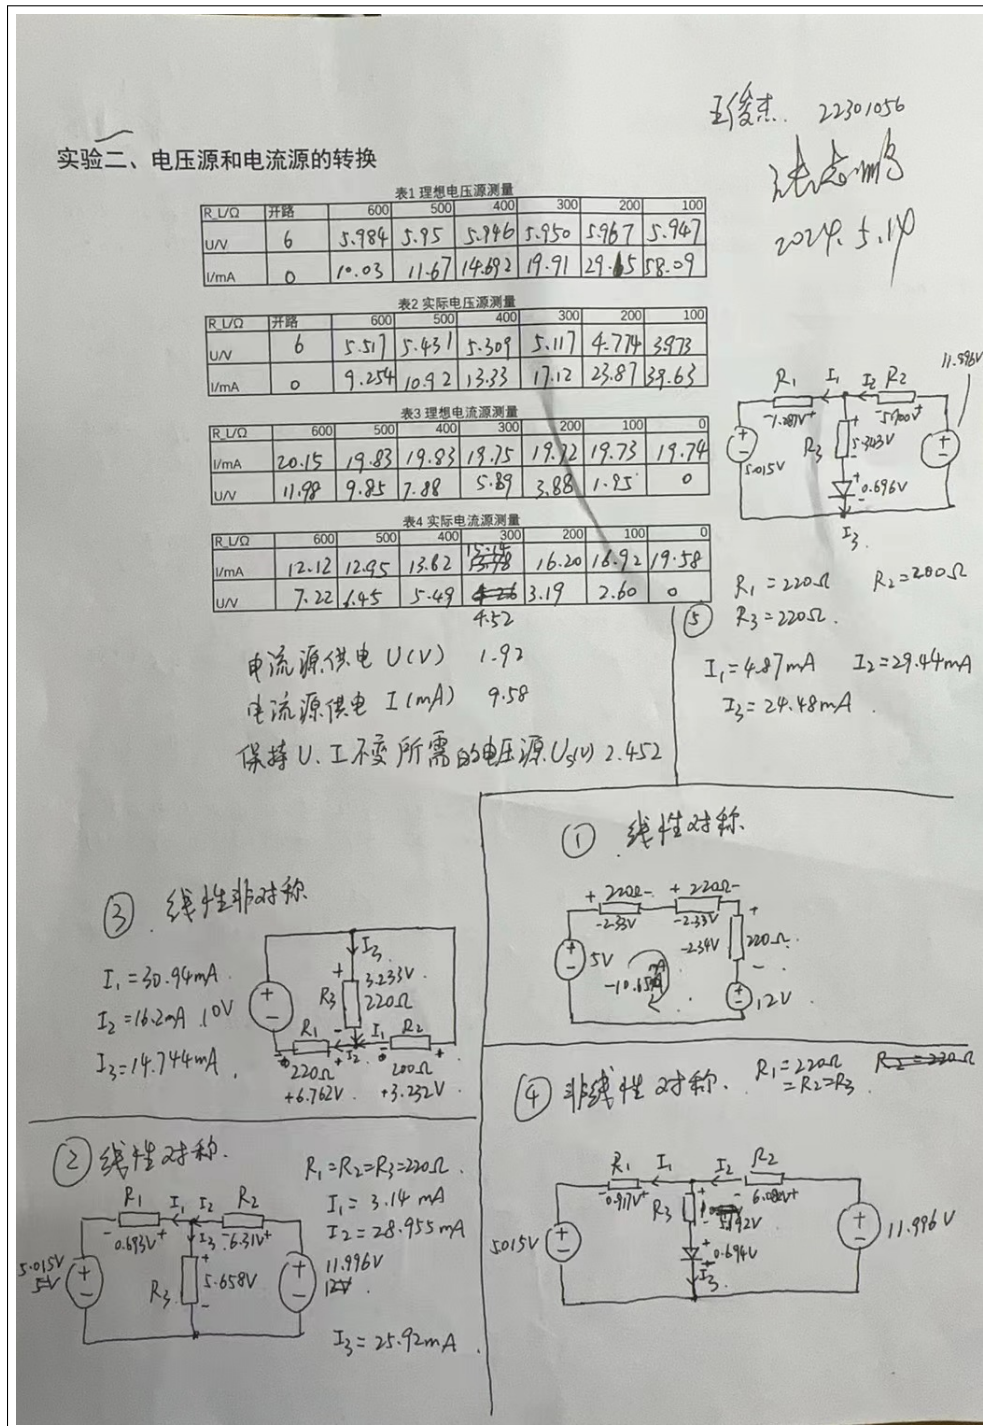 王俊杰. 22301056
2024.5.14
实验二、电压源和电流源的转换
表1 理想电压源测量
R_L/Ω 开路 600 500 400 300 200 100
U/V 6 5.984 5.95 5.946 5.950 5.967 5.947
I/mA 0 10.03 11.67 14.692 19.91 29.65 58.09
表2 实际电压源测量
R_L/Ω 开路 600 500 400 300 200 100
U/V 6 5.517 5.431 5.309 5.117 4.774 3.973
I/mA 0 9.254 10.92 13.33 17.12 23.87 39.63
表3 理想电流源测量
R_L/Ω 600 500 400 300 200 100 0
I/mA 20.15 19.83 19.83 19.75 19.72 19.73 19.74
U/V 11.98 9.85 7.88 5.89 3.88 1.95 0
表4 实际电流源测量
R_L/Ω 600 500 400 300 200 100 0
I/mA 12.12 12.95 13.82 15.14 16.20 16.92 19.58
U/V 7.22 6.45 5.49 4.52 3.19 2.60 0
电流源供电 U(V) 1.92
电流源供电 I(mA) 9.58
保持U、I不变所需的电压源Us(V) 2.452
11.996V
R1 I1 I2 R2
-1.287V+ R3 + 5.343V -
5.015V
+0.696V
I3
R1=220Ω R2=200Ω
⑤ R3=220Ω.
I1=4.87mA I2=29.44mA
I3=24.48mA.
① 线性对称
+ 220Ω - + 220Ω -
-2.33V -2.33V
5V -2.34V 220Ω
12V
③ 线性非对称
I1=30.94mA.
I2=16.2mA 10V
I3=14.744mA.
I3
3.233V
R3 220Ω
R1 I2 I1 R2
220Ω 200Ω
+6.762V +3.232V
④ 非线性对称. R1=220Ω
=R2=R3
R1 I1 I2 R2
-0.917V+ R3 6.082V+
5.015V 11.996V
0.694V
I3
② 线性对称.
R1=R2=R3=220Ω.
I1=3.14mA
I2=28.955mA
R1 I1 I2 R2
-0.693V+ I3 -6.31V+
5.015V 11.996V
5V R3 5.658V 12V
I3=25.92mA